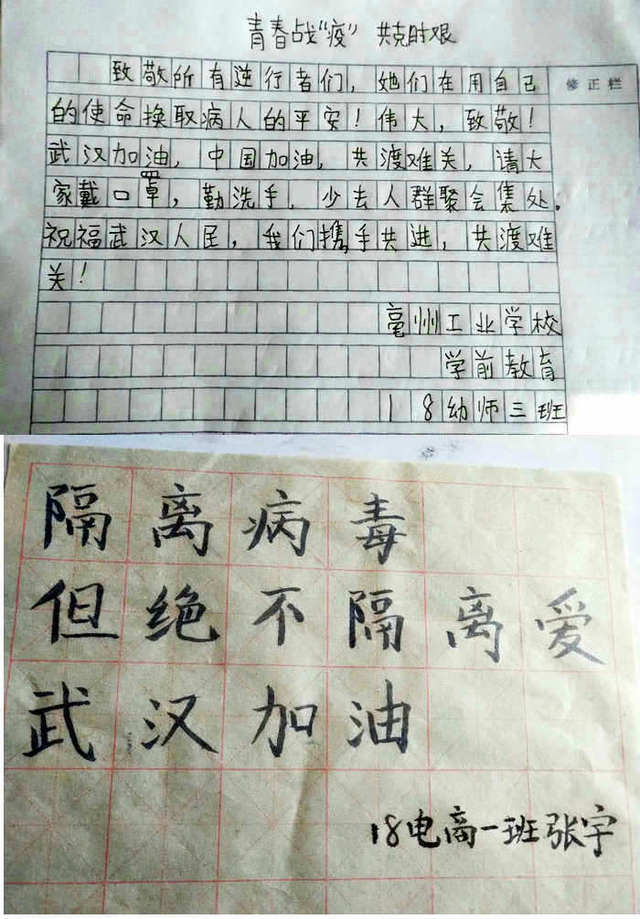 青春战“疫” 共克时艰
致敬所有逆行者们，她们在用自己
修正栏
的使命换取病人的平安！伟大，致敬！
武汉加油，中国加油，共渡难关，请大
家戴口罩，勤洗手，少去人群聚会集处。
祝福武汉人民，我们携手共进，共渡难
关！
亳州工业学校
学前教育
18幼师三班
隔离病毒
但绝不隔离爱
武汉加油
18电商一班张宇